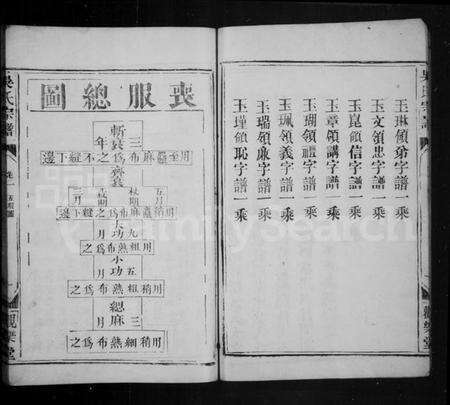 玉琳領弟字譜一乘
玉文領忠字譜一乘
玉崑領信字譜一乘
玉章領講字譜一乘
玉瑚領禮字譜一乘
玉珮領義字譜一乘
玉瑞領廉字譜一乘
玉瑾領恥字譜一乘
觀樂堂
喪服總圖
斬衰三年
用至麤麻布為之不緝下邊
齊衰
五月
杖期
三月
用稍麤麻布為之緝下邊
大功九月
用粗熟布為之
小功五月
用稍粗熟布為之
緦麻三月
用稍細熟布為之
吳氏宗譜
卷一
觀樂堂
FamilySearch